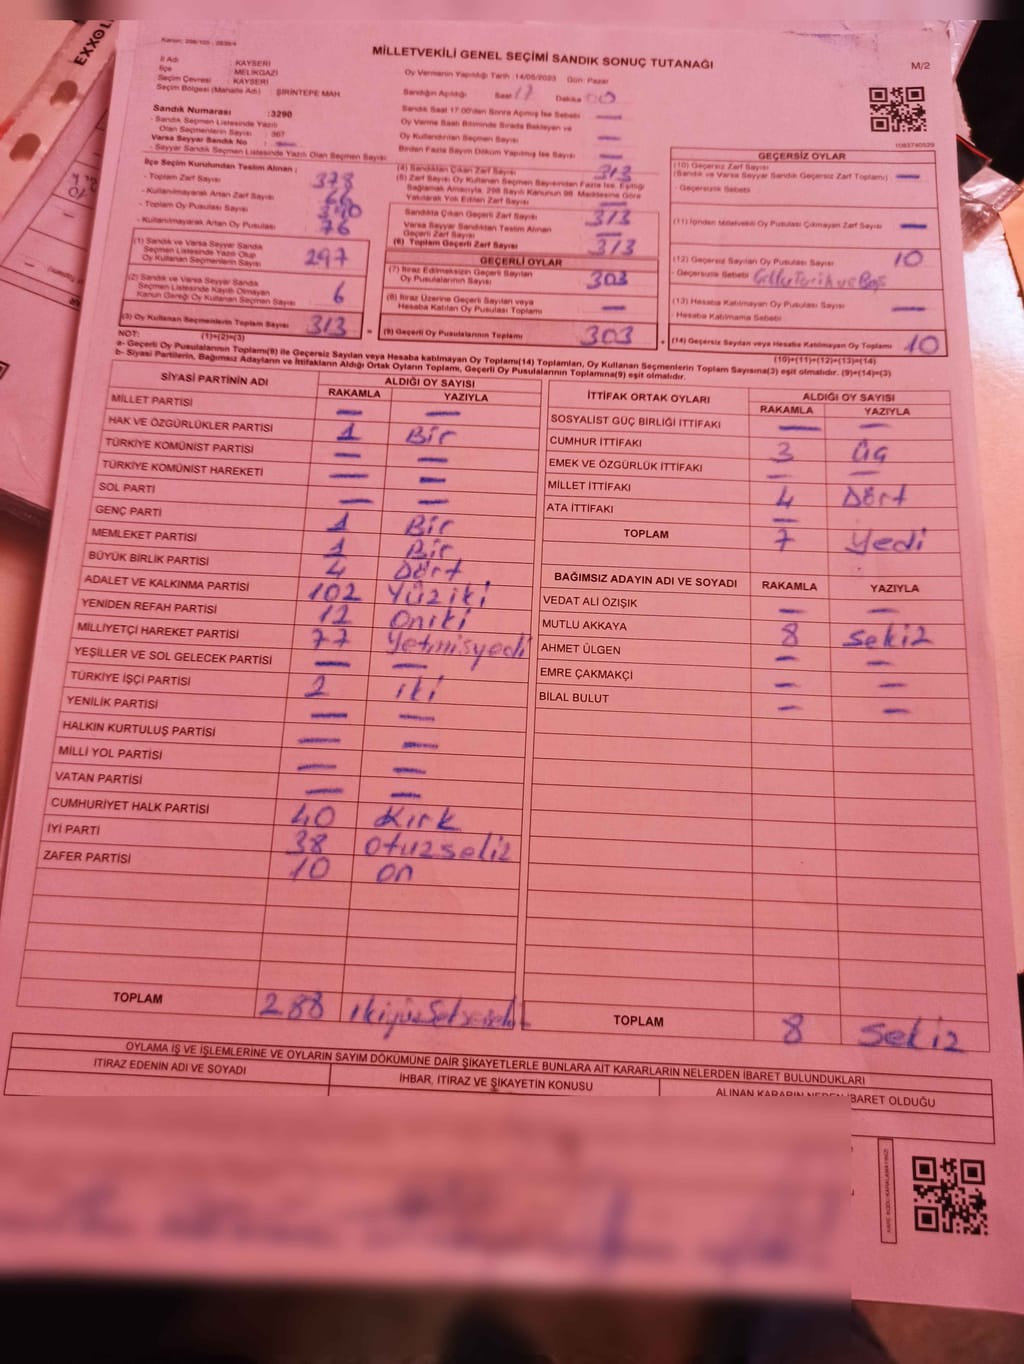 EXXOL
Kanun: 298/105 - 2839/4
MİLLETVEKİLİ GENEL SEÇİMİ SANDIK SONUÇ TUTANAĞI
M/2
İl Adı : KAYSERİ
İlçe : MELİKGAZİ
Seçim Çevresi : KAYSERİ
Seçim Bölgesi (Mahalle Adı) : ŞİRİNTEPE MAH
Oy Vermenin Yapıldığı Tarih :14/05/2023 Gün: Pazar
Sandığın Açıldığı Saat 17 Dakika 00
Sandık Numarası :3290
- Sandık Seçmen Listesinde Yazılı Olan Seçmenlerin Sayısı : 367
Varsa Seyyar Sandık No : —
- Seyyar Sandık Seçmen Listesinde Yazılı Olan Seçmen Sayısı:
Sandık Saat 17.00'den Sonra Açılmış İse Sebebi —
Oy Verme Saati Bitiminde Sırada Bekleyen ve
Oy Kullandırılan Seçmen Sayısı —
Birden Fazla Sayım Döküm Yapılmış İse Sayısı —
1083740529
İlçe Seçim Kurulundan Teslim Alınan ;
- Toplam Zarf Sayısı
- Kullanılmayarak Artan Zarf Sayısı
- Toplam Oy Pusulası Sayısı
- Kullanılmayarak Artan Oy Pusulası 76
(1) Sandık ve Varsa Seyyar Sandık Seçmen Listesinde Yazılı Olup Oy Kullanan Seçmenlerin Sayısı 297
(2) Sandık ve Varsa Seyyar Sandık Seçmen Listesinde Kayıtlı Olmayan Kanun Gereği Oy Kullanan Seçmen Sayısı 6
(3) Oy Kullanan Seçmenlerin Toplam Sayısı 313
(4) Sandıktan Çıkan Zarf Sayısı 313
(5) Zarf Sayısı Oy Kullanan Seçmen Sayısından Fazla İse, Eşitliği Sağlamak Amacıyla, 298 Sayılı Kanunun 98. Maddesine Göre Yakılarak Yok Edilen Zarf Sayısı —
Sandıkta Çıkan Geçerli Zarf Sayısı 313
Varsa Seyyar Sandıktan Teslim Alınan Geçerli Zarf Sayısı —
(6) Toplam Geçerli Zarf Sayısı 313
GEÇERLİ OYLAR
(7) İtiraz Edilmeksizin Geçerli Sayılan Oy Pusulalarının Sayısı 303
(8) İtiraz Üzerine Geçerli Sayılan veya Hesaba Katılan Oy Pusulası Toplamı —
= (9) Geçerli Oy Pusulalarının Toplamı 303
GEÇERSİZ OYLAR
(10) Geçersiz Zarf Sayısı
(Sandık ve Varsa Seyyar Sandık Geçersiz Zarf Toplamı) —
- Geçersizlik Sebebi
(11) İçinden Milletvekili Oy Pusulası Çıkmayan Zarf Sayısı —
(12) Geçersiz Sayılan Oy Pusulası Sayısı 10
- Geçersizlik Sebebi
(13) Hesaba Katılmayan Oy Pusulası Sayısı —
- Hesaba Katılmama Sebebi
+ (14) Geçersiz Sayılan veya Hesaba Katılmayan Oy Toplamı 10
NOT: (1)+(2)=(3)
(10)+(11)+(12)+(13)=(14)
a- Geçerli Oy Pusulalarının Toplamı(9) ile Geçersiz Sayılan veya Hesaba katılmayan Oy Toplamı(14) Toplamları, Oy Kullanan Seçmenlerin Toplam Sayısına(3) eşit olmalıdır. (9)+(14)=(3)
b- Siyasi Partilerin, Bağımsız Adayların ve İttifakların Aldığı Ortak Oyların Toplamı, Geçerli Oy Pusulalarının Toplamına(9) eşit olmalıdır.
SİYASİ PARTİNİN ADI ALDIĞI OY SAYISI
RAKAMLA YAZIYLA
MİLLET PARTİSİ — —
HAK VE ÖZGÜRLÜKLER PARTİSİ 1 Bir
TÜRKİYE KOMÜNİST PARTİSİ — —
TÜRKİYE KOMÜNİST HAREKETİ — —
SOL PARTİ — —
GENÇ PARTİ 1 Bir
MEMLEKET PARTİSİ 1 Bir
BÜYÜK BİRLİK PARTİSİ 4 Dört
ADALET VE KALKINMA PARTİSİ 102 Yüziki
YENİDEN REFAH PARTİSİ 12 Oniki
MİLLİYETÇİ HAREKET PARTİSİ 77 Yetmisyedi
YEŞİLLER VE SOL GELECEK PARTİSİ — —
TÜRKİYE İŞÇİ PARTİSİ 2 iki
YENİLİK PARTİSİ — —
HALKIN KURTULUŞ PARTİSİ — —
MİLLİ YOL PARTİSİ — —
VATAN PARTİSİ — —
CUMHURİYET HALK PARTİSİ 40 Kırk
İYİ PARTİ 38 Otuzsekiz
ZAFER PARTİSİ 10 on
TOPLAM 288
İTTİFAK ORTAK OYLARI ALDIĞI OY SAYISI
RAKAMLA YAZIYLA
SOSYALİST GÜÇ BİRLİĞİ İTTİFAKI — —
CUMHUR İTTİFAKI 3 Üç
EMEK VE ÖZGÜRLÜK İTTİFAKI — —
MİLLET İTTİFAKI 4 Dört
ATA İTTİFAKI —
TOPLAM 7 Yedi
BAĞIMSIZ ADAYIN ADI VE SOYADI RAKAMLA YAZIYLA
VEDAT ALİ ÖZIŞIK — —
MUTLU AKKAYA 8 Sekiz
AHMET ÜLGEN — —
EMRE ÇAKMAKÇİ — —
BİLAL BULUT — —
TOPLAM 8 Sekiz
OYLAMA İŞ VE İŞLEMLERİNE VE OYLARIN SAYIM DÖKÜMÜNE DAİR ŞİKAYETLERLE BUNLARA AİT KARARLARIN NELERDEN İBARET BULUNDUKLARI
İTİRAZ EDENİN ADI VE SOYADI
İHBAR, İTİRAZ VE ŞİKAYETİN KONUSU
ALINAN KARARIN NEDEN İBARET OLDUĞU